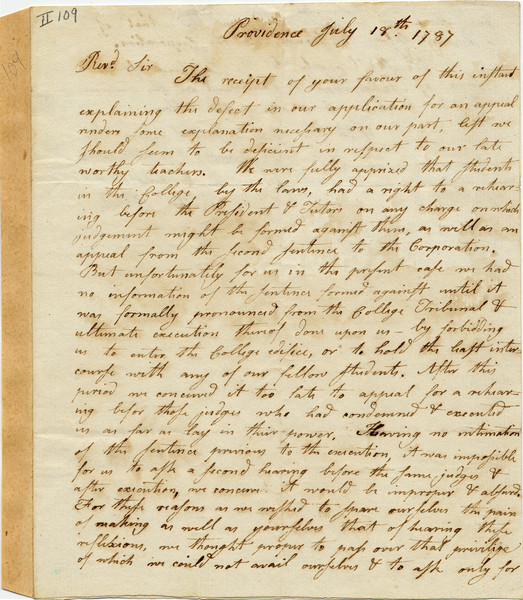 II 109
109
Providence July 18th. 1787
Revd. Sir The receipt of your favour of this instant
explaining the defect in our application for an appeal
renders some explanation necessary on our part, lest we
should seem to be deficient in respect to our late
worthy teachers. We were fully apprized that students
in the College, by the laws, had a right to a rehear-
ing before the President & Tutors on any charge on which
judgement might be formed against them, as well as an
appeal from the second sentence to the Corporation.
But unfortunately for us in the present case we had
no information of the sentence formed against until it
was formally pronounced from the College Tribunal &
ultimate execution thereof done upon us – by forbidding
us to enter the College edifice, or to hold the least inter-
course with any of our fellow students. After this
period we conceived it too late to appeal for a rehear-
ing before those judges who had condemned & executed
us as far as lay in their power. Having no intimation
of the sentence previous to the execution, it was impossible
for us to ask a second hearing before the same judges &
after execution, we conceive it would be improper & absurd.
For these reasons as we wished to spare ourselves the pain
of making as well as yourselves that of hearing these
reflexions, we thought proper to pass over that privilige
of which we could not avail ourselves & to ask only for